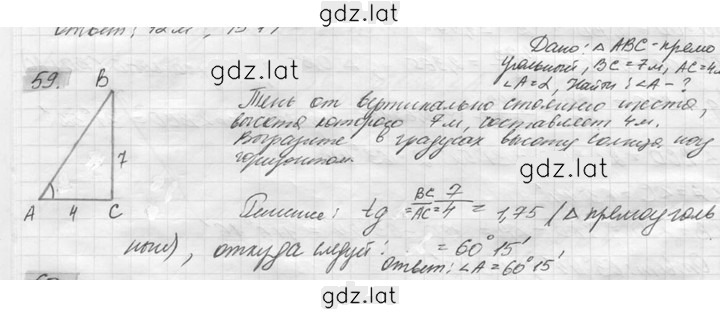 gdz.lat
Ответ: 12м,
Дано: △ ABC - прямо
угольный, BC = 7м, AC = 4м
∠A = α, Найти: ∠A - ?
59.
B
gdz.lat
Тень от вертикально стоящего шеста,
высота которого 7м, составляет 4м.
Выразите в градусах высоту солнца над
горизонтом
7
A 4 C
Решение: tg = BC/AC = 7/4 = 1,75 (△ прямоуголь
ный), откуда следует: = 60° 15'
Ответ: ∠A = 60° 15'
gdz.lat
gdz.lat